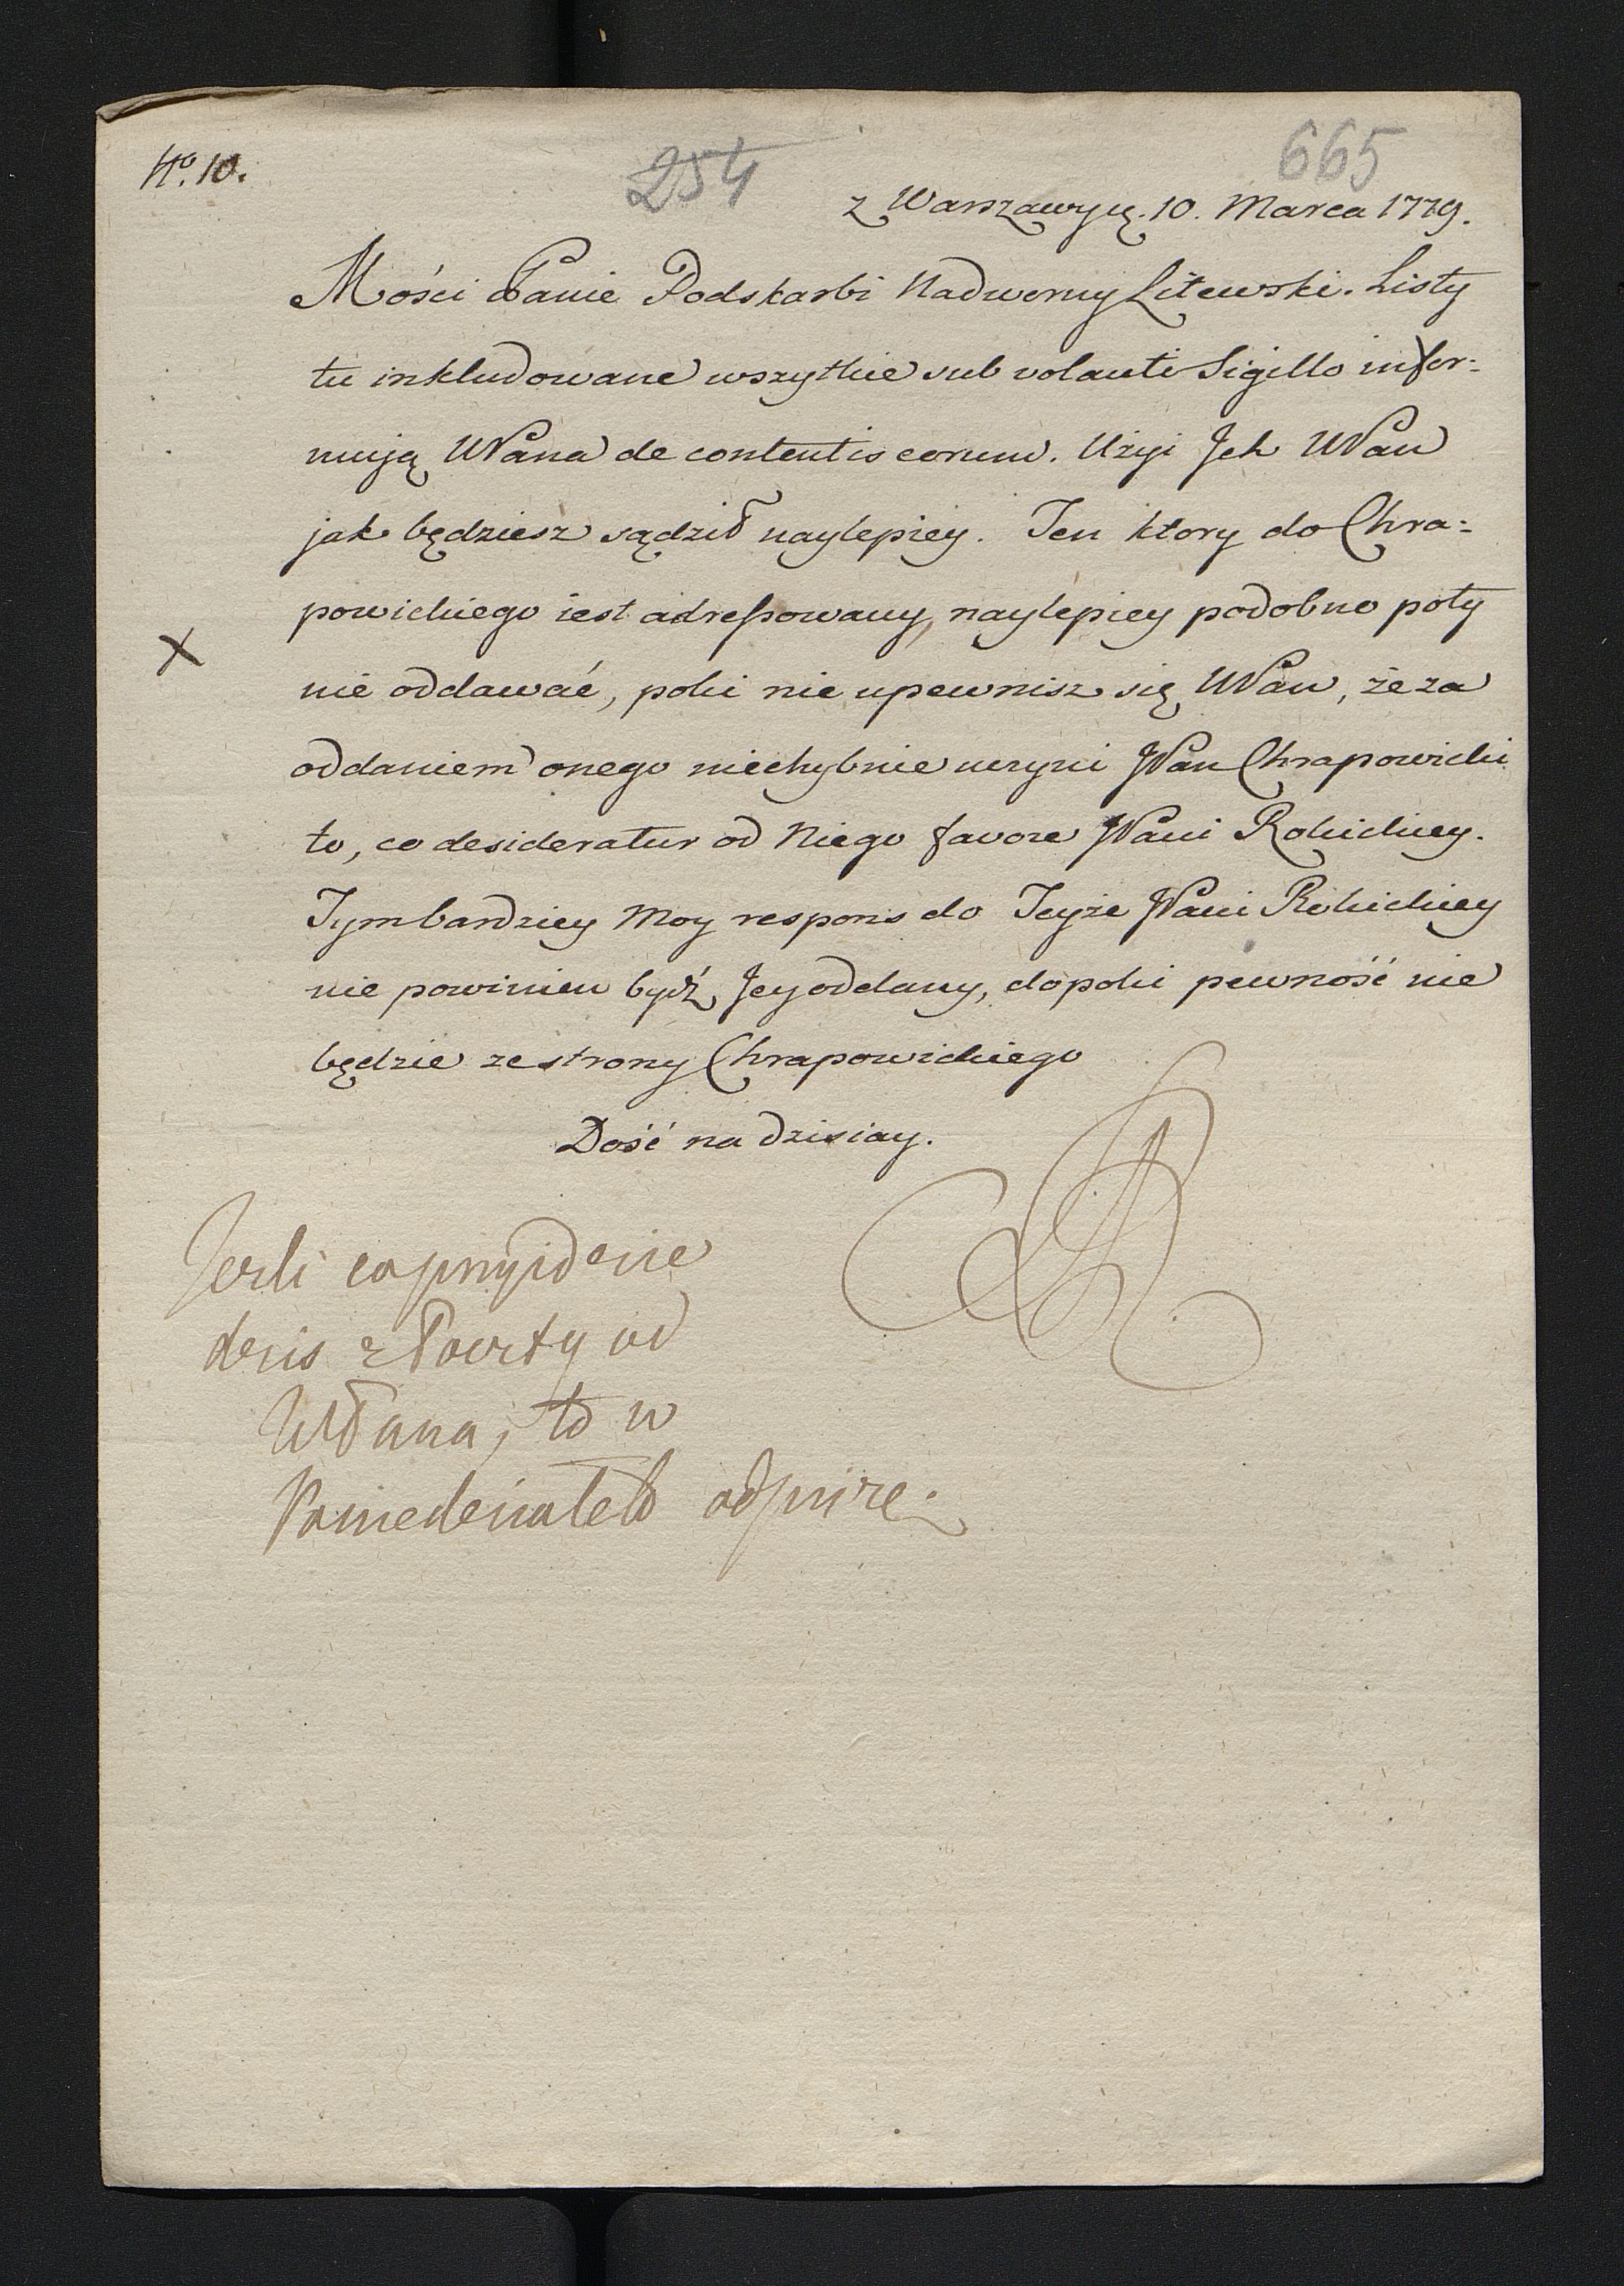 No. 10.
254
665
z Warszawy d. 10. Marca 1779.
Mości Panie Podskarbi Nadworny Litewski. Listy
tu inkludowane wszytkie sub volanti Sigillo infor=
mują WPana de contentis eorum. Użyi Jch WPan
jak będziesz sądził naylepiey. Ten ktory do Chra=
powickiego iest adressowany, naylepiey podobno poty
nie oddawać, poki nie upewnisz się WPan, że za
oddaniem onego niechybnie uczyni JPan Chrapowicki
to, co desideratur od Niego favore JPani Rokickiey.
Tym bardziey Moy respons do Teyże JPani Rokickiey
nie powinien bydź Jey oddany, dopoki pewność nie
będzie ze strony Chrapowickiego
Dość na dzisiay.
Jesli co przyidzie
dzis z Poczty od
WPana, to w
Poniedziałek odpiszę.
X